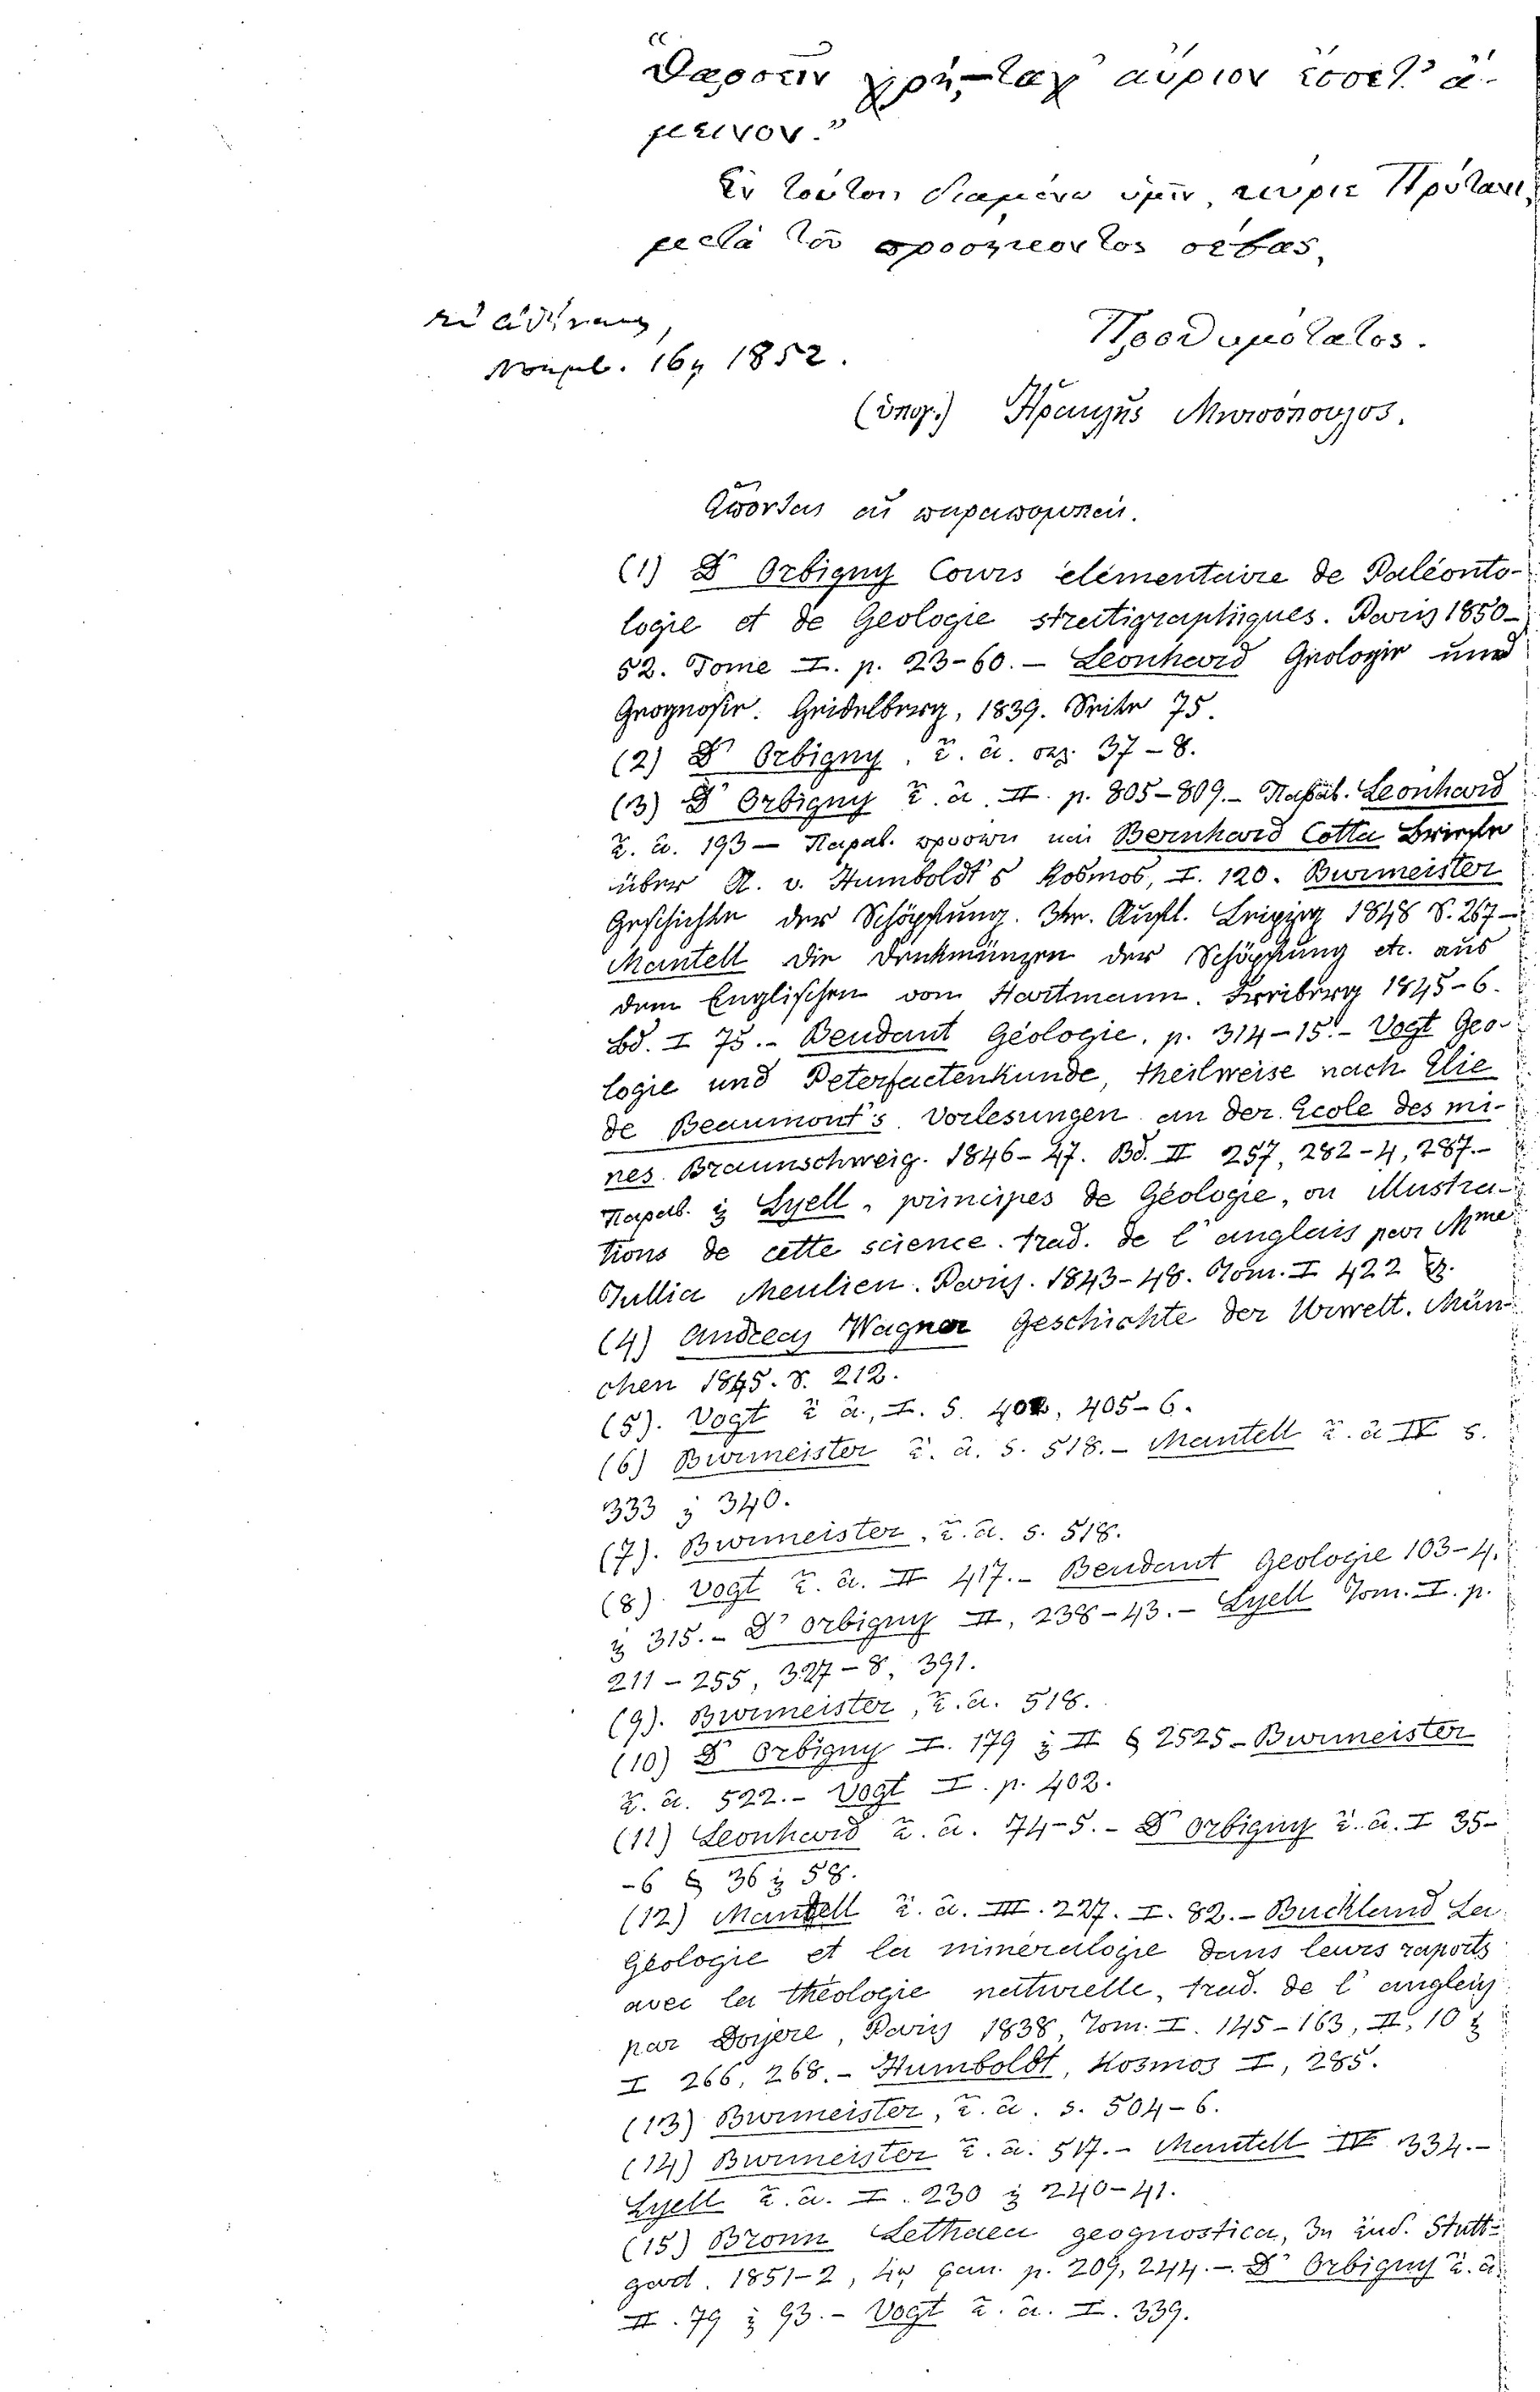 “Θαρσεῖν χρή, – ταχ’ αὔριον ἔσσετ’ ἄ-
μεινον.”
Ἐν τούτοις διαμένω ὑμῖν, κύριε Πρύτανι,
μετὰ τοῦ προσήκοντος σέβας,
Ἐν Ἀθήναις,
Νοεμβ. 16η 1852.
Προθυμότατος.
(ὑπογ.) Ἡρακλῆς Μιτσόπουλος.
Ἕπονται αἱ παραπομπαί.
(1) D’ Orbigny Cours élémentaire de Paléonto-
logie et de Geologie stratigraphiques. Paris 1850–
52. Tome I. p. 23-60. – Leonhard Geologie und
Geognosie. Heidelberg, 1839. Seite 75.
(2) D’ Orbigny, ἔ. ἀ. σελ. 37-8.
(3) D’ Orbigny ἔ. ἀ. II. p. 805-809. – Παραβ. Leonhard
ἔ. ἀ. 193 – Παραβ. προσέτι καὶ Bernhard Cotta Briefe
über A. v. Humboldt’s Kosmos, I. 120. Burmeister
Geschichte der Schöpfung. 3te. Aufl. Leipzig 1848 S. 267 –
Mantell Die Denkmünzen der Schöpfung etc. aus
dem Englischen von Hartmann. Freiberg 1845-6.
Bd. I 75. – Beudant Géologie, p. 314-15. – Vogt Geo-
logie und Peterfactenkunde, theilweise nach Elie
de Beaumont’s Vorlesungen an der Ecole des mi-
nes. Braunschweig. 1846-47. Bd. II 257, 282-4, 287. –
Παραβ. ϗ Lyell, principes de Géologie, ou illustra-
tions de cette science. trad. de l’ anglais par Mme
Tullia Meulien. Paris. 1843-48. Tom. I 422
(4) Andreas Wagner Geschichte der Urwelt. Mün-
chen 1845. S. 212.
(5). Vogt ἔ. ἀ., I. S. 402, 405-6.
(6) Burmeister ἔ. ἀ. S. 518. – Mantell ἔ. ἀ. IV S.
333 ϗ 340.
(7). Burmeister, ἔ. ἀ. S. 518.
(8). Vogt ἔ. ἀ. II 417. – Beudant Geologie 103-4,
ϗ 315. – D’ Orbigny II, 238-43. – Lyell Tom. I. p.
211-255, 327-8, 391.
(9). Burmeister, ἔ. ἀ. 518.
(10) D’ Orbigny I. 179 ϗ II § 2525 – Burmeister
ἔ. ἀ. 522. – Vogt I. p. 402.
(11) Leonhard ἔ. ἀ. 74-5. – D’ Orbigny ἔ. ἀ. I 35-
-6 § 36 ϗ 58.
(12) Mantell ἔ. ἀ. III. 227. I. 82. – Buckland La
Géologie et la minéralogie dans leurs raports
avec la théologie naturelle, trad. de l’ anglais
par Doyere, Paris 1838, Tom. I. 145-163, II, 10 ϗ
I 266, 268. – Humboldt, Kosmos I, 285.
(13) Burmeister, ἔ. ἀ. S. 504-6.
(14) Burmeister ἔ. ἀ. 517. – Mantell IV 334. –
Lyell ἔ. ἀ. I. 230 ϗ 240-41.
(15) Bronn Lethaea geognostica, 3η ἐκδ. Stutt-
gard. 1851-2, p. 209, 244. – D’ Orbigny ἔ. ἀ.
II. 79 ϗ 93. – Vogt ἔ. ἀ. I. 339.